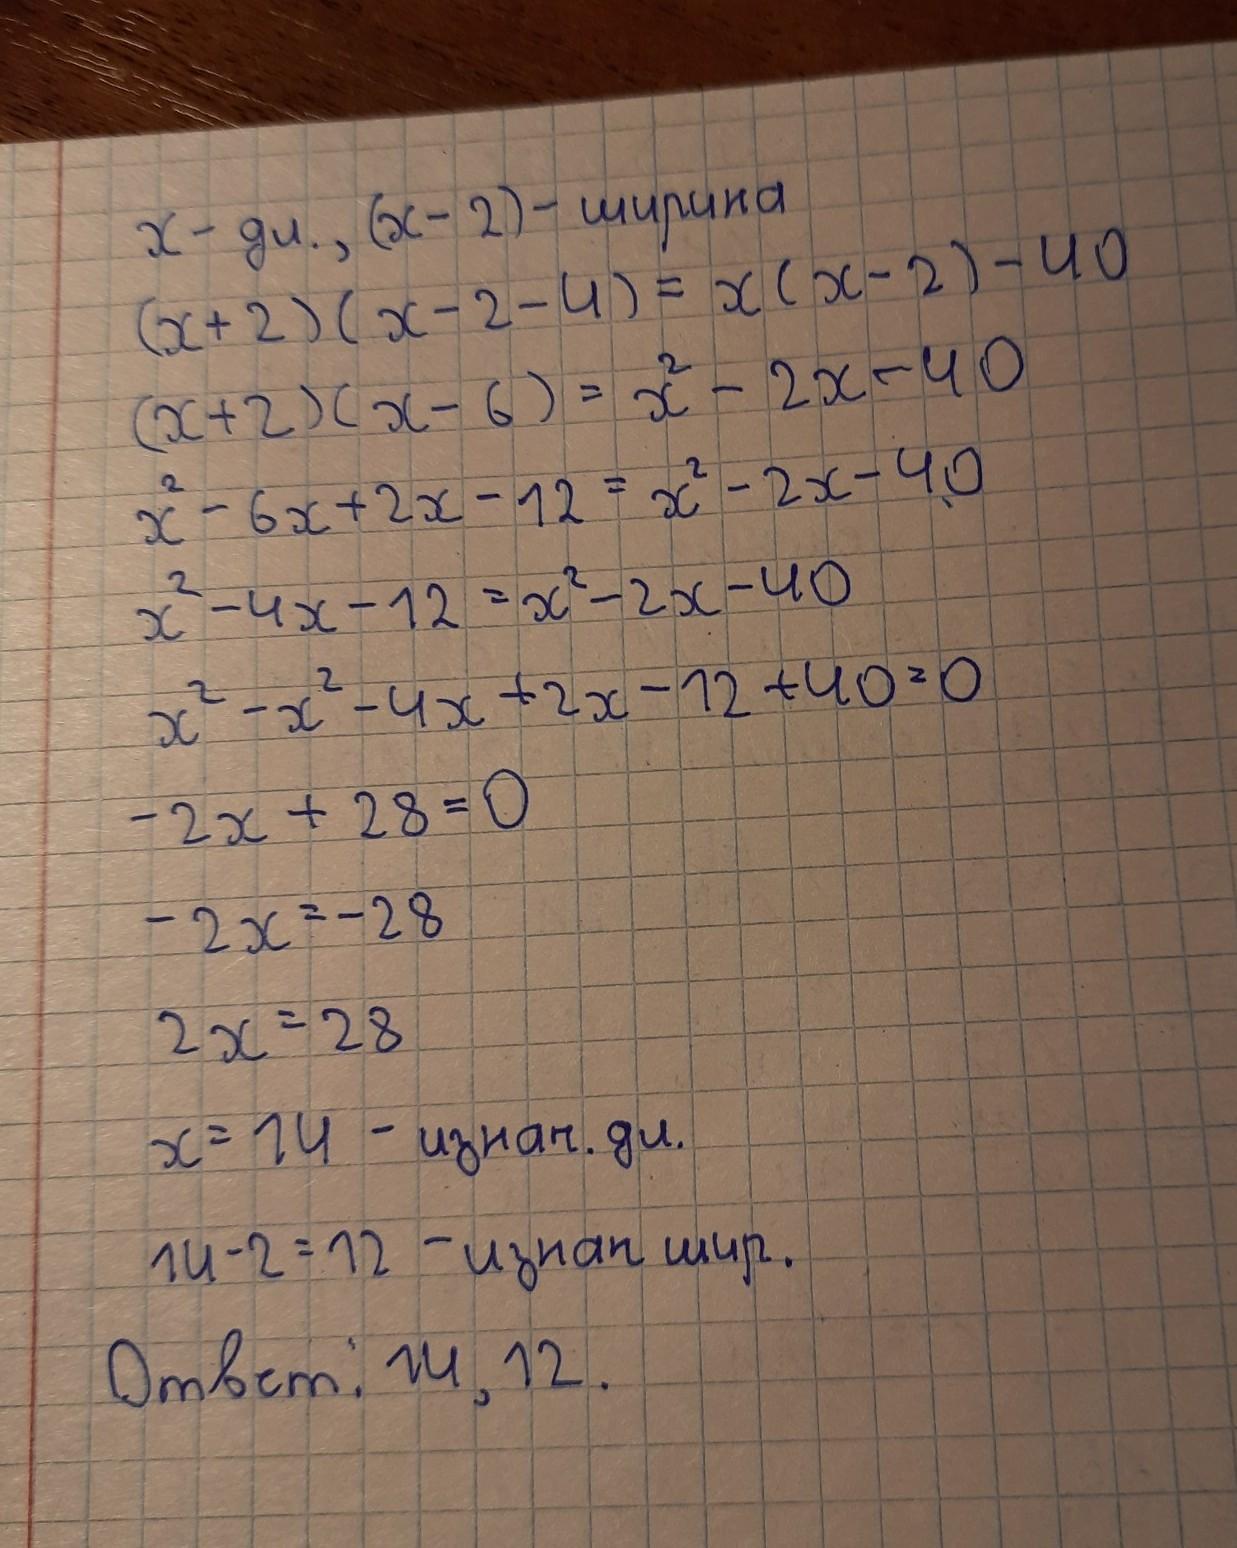 x - дл., (x - 2) - ширина
(x + 2)(x - 2 - 4) = x(x - 2) - 40
(x + 2)(x - 6) = x² - 2x - 40
x² - 6x + 2x - 12 = x² - 2x - 40
x² - 4x - 12 = x² - 2x - 40
x² - x² - 4x + 2x - 12 + 40 = 0
-2x + 28 = 0
-2x = -28
2x = 28
x = 14 - изнач. дл.
14 - 2 = 12 - изнач шир.
Ответ: 14, 12.